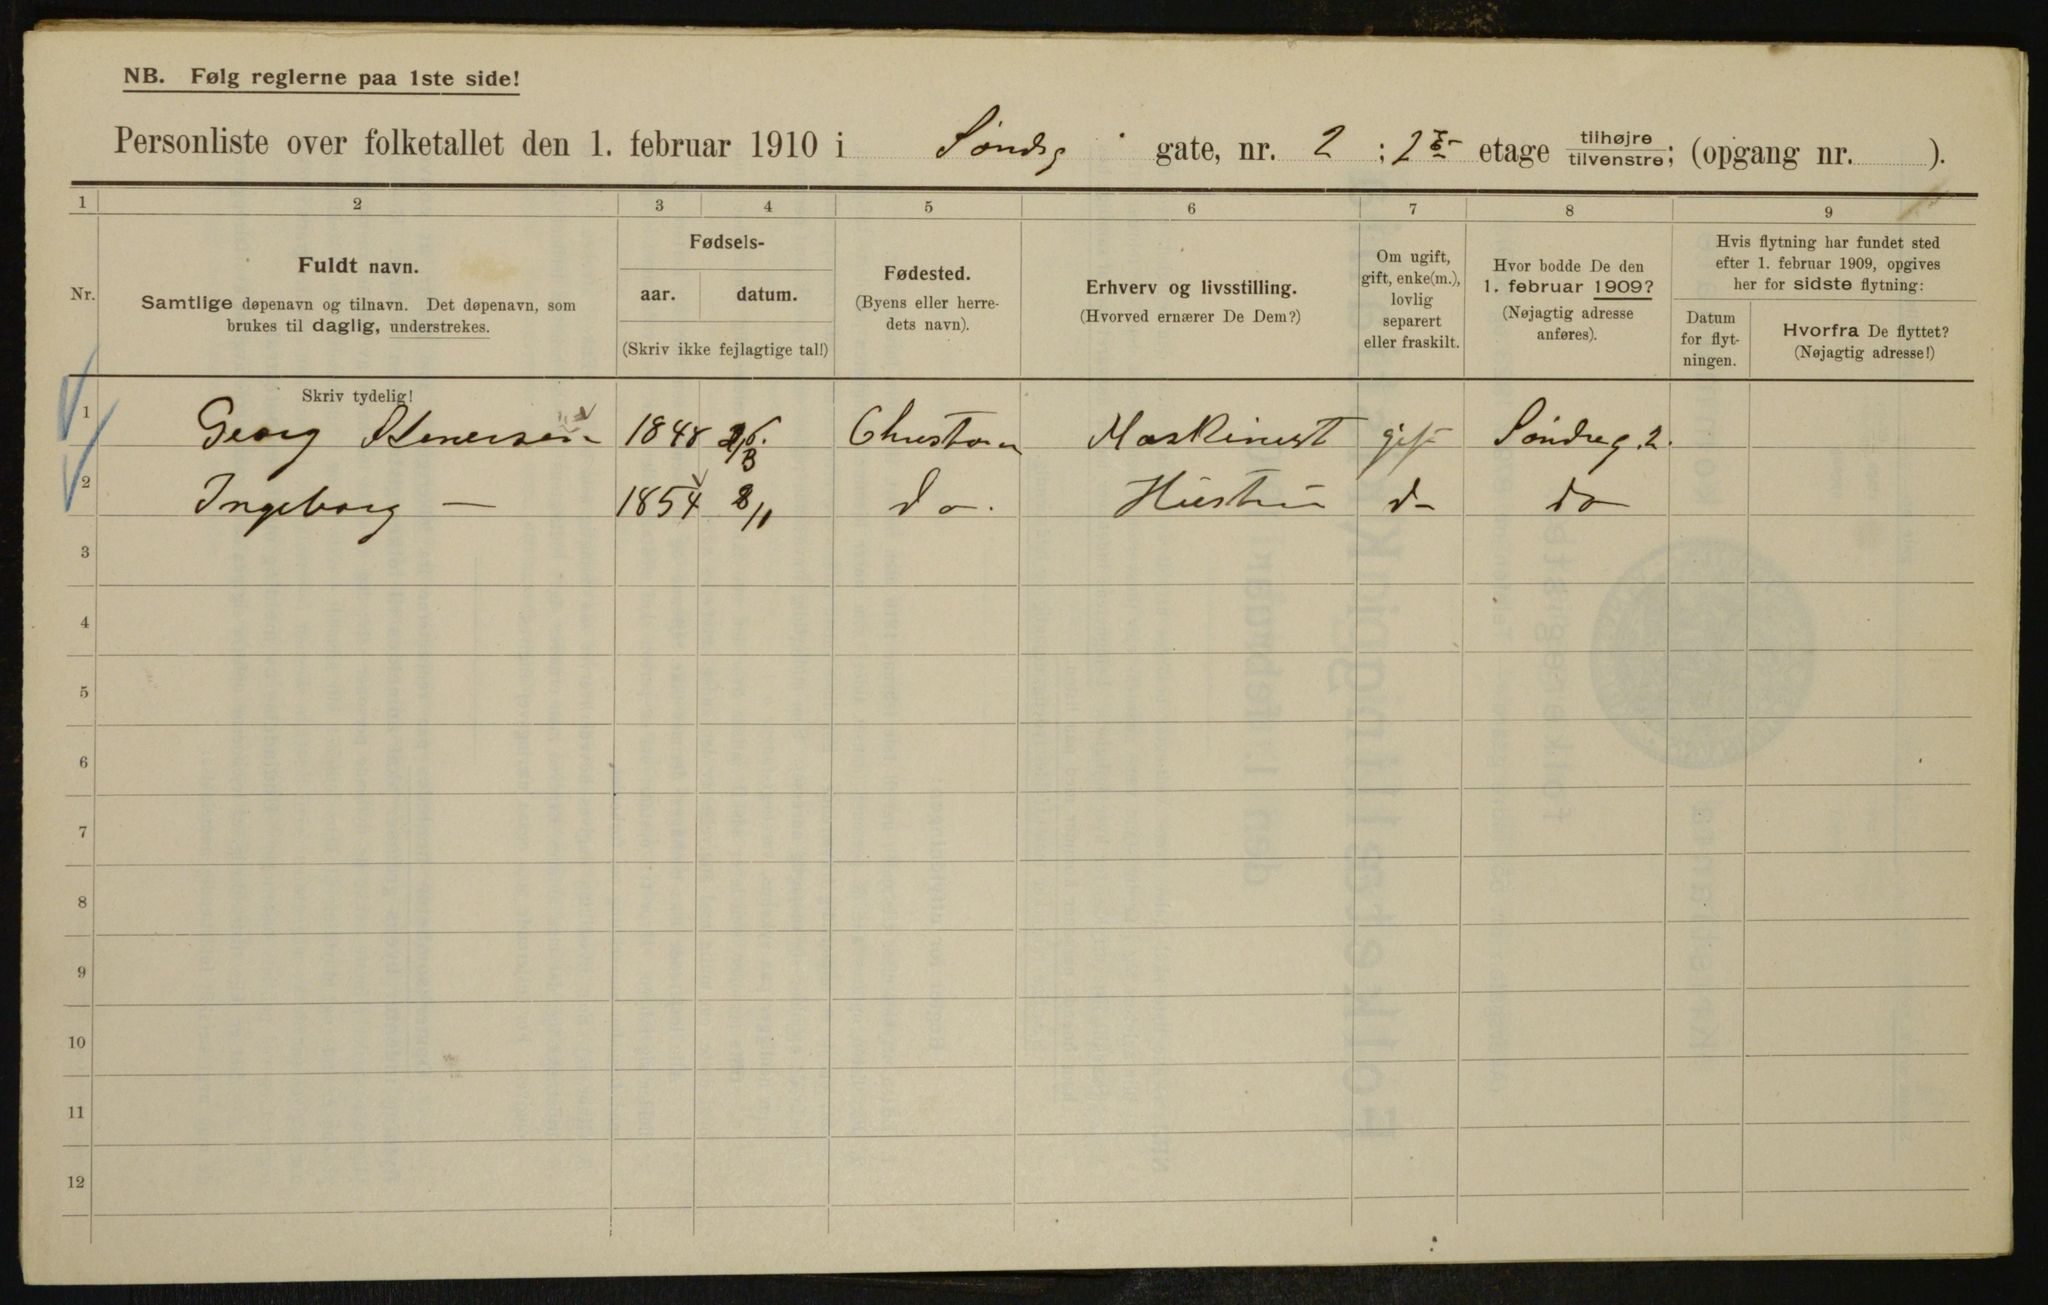 NB. Følg reglerne paa 1ste side!
Personliste over folketallet den 1. februar 1910 i Søndg gate, nr. 2 ; 2 etage tilhøjre/tilvenstre; (opgang nr. ).
1 2 3 4 5 6 7 8 9
Nr.
Fuldt navn.
Samtlige døpenavn og tilnavn. Det døpenavn, som
brukes til daglig, understrekes.
Fødsels-
aar. datum.
(Skriv ikke fejlagtige tal!)
Fødested.
(Byens eller herre-
dets navn).
Erhverv og livsstilling.
(Hvorved ernærer De Dem?)
Om ugift,
gift, enke(m.),
lovlig
separert
eller fraskilt.
Hvor bodde De den
1. februar 1909?
(Nøjagtig adresse
anføres).
Hvis flytning har fundet sted
efter 1. februar 1909, opgives
her for sidste flytning:
Datum
for flyt-
ningen.
Hvorfra De flyttet?
(Nøjagtig adresse!)
Skriv tydelig!
1 Georg 1848 Maskinist gift Søndreg. 2.
2 Ingeborg — 1854 8/11 do. Hustru do do
3
4
5
6
7
8
9
10
11
12